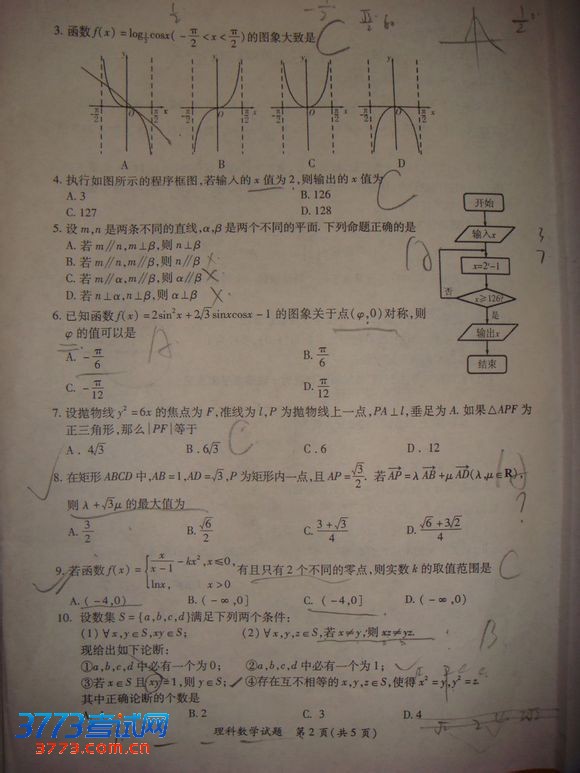 3. 函数f(x)=log½cosx(-π/2<x<π/2)的图象大致是 C
A B C D
4. 执行如图所示的程序框图,若输入的x值为2,则输出的x值为 C
A. 3 B. 126
C. 127 D. 128
开始
输入x
x=2ˣ-1
x≥126?
否
是
输出x
结束
5. 设m,n是两条不同的直线,α,β是两个不同的平面.下列命题正确的是
A. 若m∥n,m⊥β,则n⊥β
B. 若m∥n,m∥β,则n∥β
C. 若m∥α,m∥β,则α∥β
D. 若n⊥α,n⊥β,则α⊥β
6. 已知函数f(x)=2sin²x+2√3sinxcosx-1的图象关于点(φ,0)对称,则
φ的值可以是 A
A. -π/6 B. π/6
C. -π/12 D. π/12
7. 设抛物线y²=6x的焦点为F,准线为l,P为抛物线上一点,PA⊥l,垂足为A.如果△APF为
正三角形,那么|PF|等于 C
A. 4√3 B. 6√3 C. 6 D. 12
8. 在矩形ABCD中,AB=1,AD=√3,P为矩形内一点,且AP=√3/2. 若AP=λAB+μAD(λ,μ∈R),
则λ+√3μ的最大值为 ?
A. 3/2 B. √6/2 C. (3+√3)/4 D. (√6+3√2)/4
9. 若函数f(x)={x/(x-1)-kx²,x≤0, lnx, x>0 有且只有2个不同的零点,则实数k的取值范围是 C
A. (-4,0) B. (-∞,0] C. (-4,0] D. (-∞,0)
10. 设数集S={a,b,c,d}满足下列两个条件:
(1)∀x,y∈S,xy∈S; (2)∀x,y,z∈S,若x≠y,则xz≠yz. B
现给出如下论断:
①a,b,c,d中必有一个为0; ②a,b,c,d中必有一个为1;
③若x∈S且xy=1,则y∈S; ④存在互不相等的x,y,z∈S,使得x²=y,y²=z.
其中正确论断的个数是
B. 2 C. 3 D. 4
理科数学试题 第2页(共5页)
3773考试网
3773.com.cn